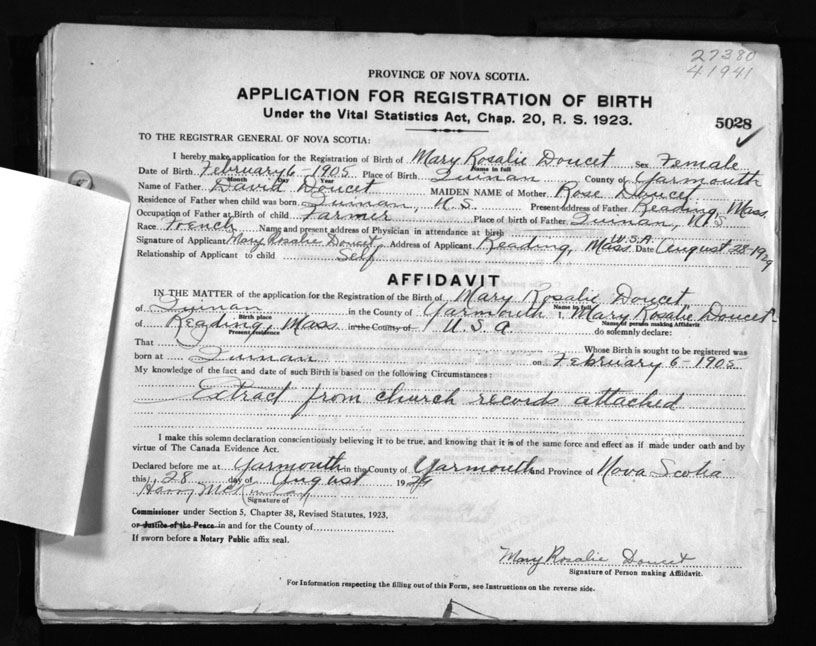 27380
41941
PROVINCE OF NOVA SCOTIA.
APPLICATION FOR REGISTRATION OF BIRTH
Under the Vital Statistics Act, Chap. 20, R. S. 1923.
5028
TO THE REGISTRAR GENERAL OF NOVA SCOTIA:
I hereby make application for the Registration of Birth of Mary Rosalie Doucet Sex Female
Name in full
Date of Birth February 6 - 1905 Place of Birth Quinan County of Yarmouth
Month Day Year
Name of Father David Doucet MAIDEN NAME of Mother Rose Doucet
Residence of Father when child was born Quinan, N.S. Present address of Father Reading, Mass.
Occupation of Father at Birth of child Farmer Place of birth of Father Quinan, N.S
Race French Name and present address of Physician in attendance at birth
Signature of Applicant Mary Rosalie Doucet Address of Applicant Reading, Mass. U.S.A. Date August 28-1929
Relationship of Applicant to child Self
AFFIDAVIT
IN THE MATTER of the application for the Registration of the Birth of Mary Rosalie Doucet
Name in full
of Quinan in the County of Yarmouth I, Mary Rosalie Doucet
Birth place Name of person making Affidavit
of Reading, Mass. in the County of U.S.A. do solemnly declare:
Present residence
That Whose Birth is sought to be registered was
born at Quinan on February 6 - 1905
My knowledge of the fact and date of such Birth is based on the following Circumstances:
Extract from church records attached
I make this solemn declaration conscientiously believing it to be true, and knowing that it is of the same force and effect as if made under oath and by
virtue of The Canada Evidence Act.
Declared before me at Yarmouth in the County of Yarmouth and Province of Nova Scotia
this 28 day of August 1929
Harry
Signature of
Commissioner under Section 5, Chapter 38, Revised Statutes, 1923,
or Justice of the Peace in and for the County of
If sworn before a Notary Public affix seal.
Mary Rosalie Doucet
Signature of Person making Affidavit.
For Information respecting the filling out of this Form, see Instructions on the reverse side.